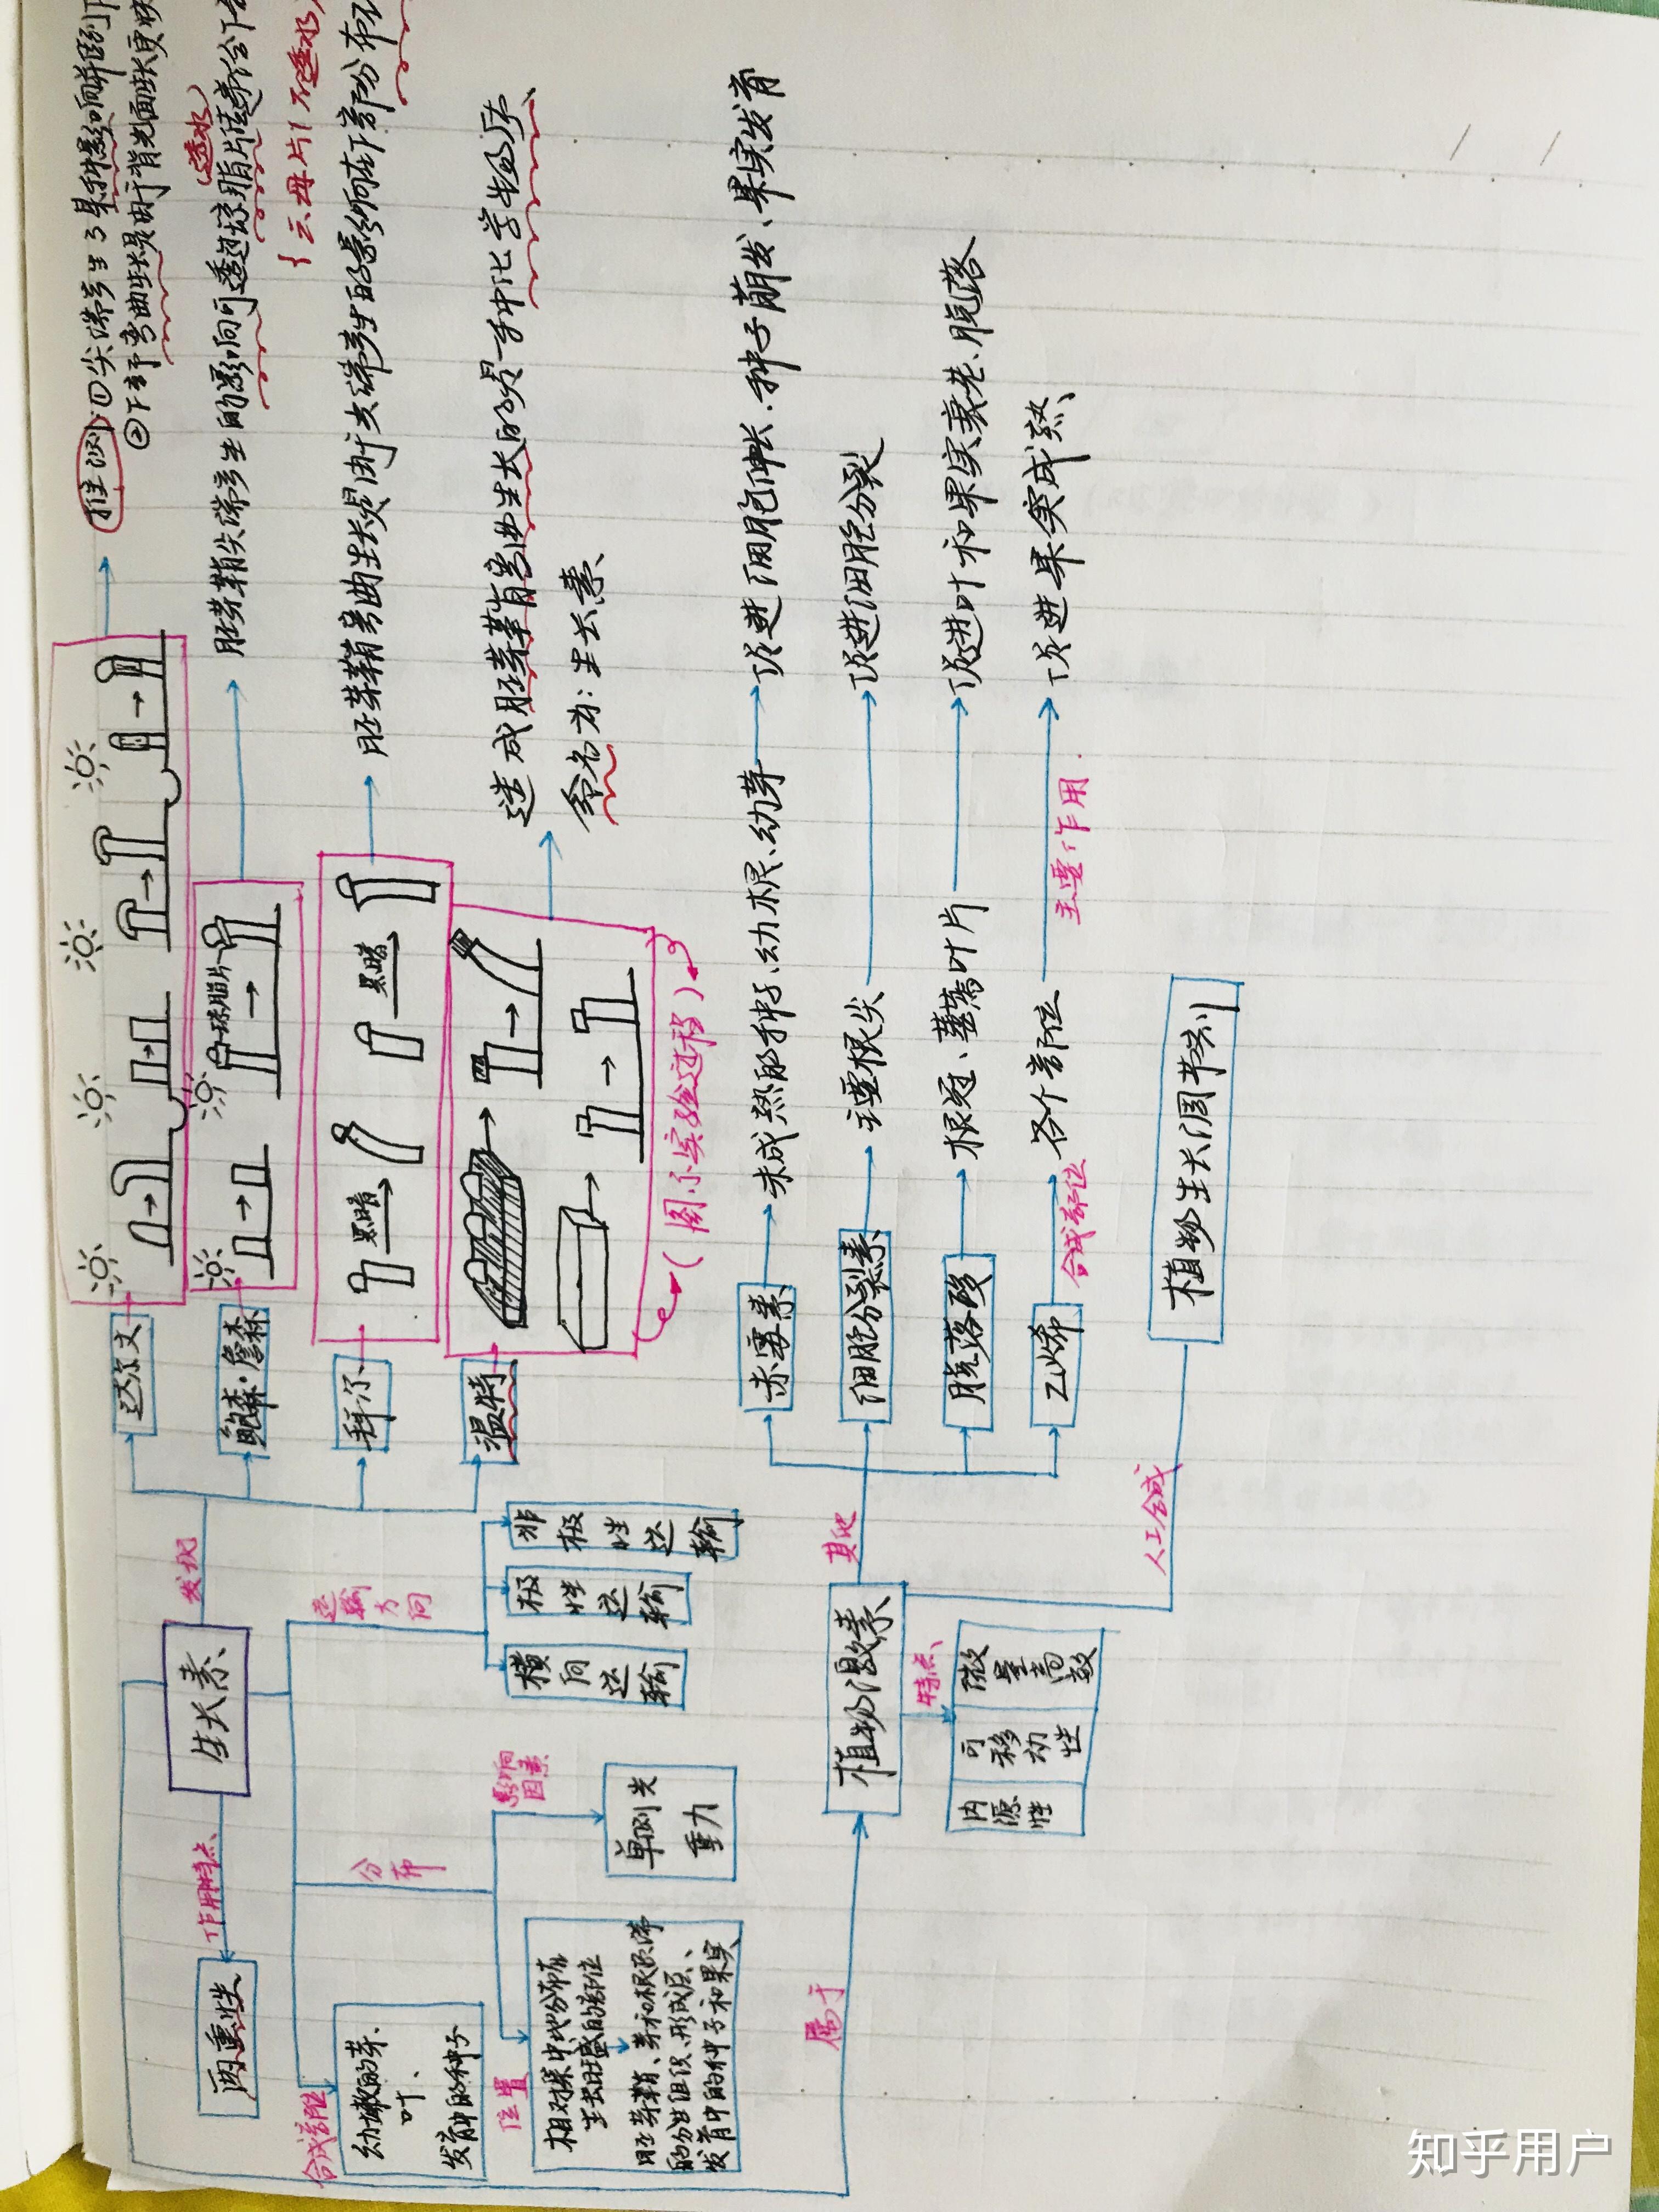 生长素
发现
达尔文
推测:①尖端产生了某种影响并向下
②下部弯曲生长是由于背光面生长更快
鲍森·詹森
琼脂片
胚芽鞘尖端产生的影响可透过琼脂片传给下部
(透水)
{云母片}不透水
拜尔
黑暗
黑暗
胚芽鞘弯曲生长是由于尖端产生的影响在下部分布不
温特
造成胚芽鞘弯曲生长的是一种化学物质、
命名为:生长素
(图示实验过程)
作用特点、
两重性
合成部位
幼嫩的芽、
叶、
发育中的种子
运输方向
横向运输
极性运输
非极性运输
分布
位置
相对集中地分布在
生长旺盛的部位
胚芽鞘、芽和根尖端
的分生组织、形成层、
发育中的种子和果实
影响因素
单侧光
重力
属于
植物激素
特点、
内源性
可移动性
微量高效
其他
赤霉素
未成熟的种子、幼根、幼芽
促进细胞伸长、种子萌发、果实发育
细胞分裂素
主要根尖
促进细胞分裂
脱落酸
根冠、萎蔫叶片
促进叶和果实衰老、脱落
乙烯
各个部位
促进果实成熟、
合成部位
主要作用
人工合成
植物生长调节剂
知乎用户